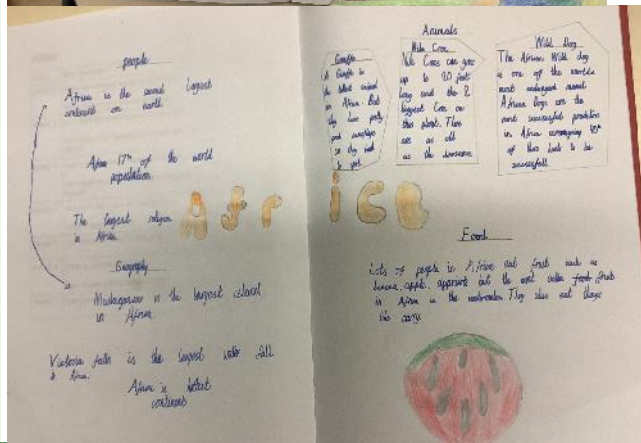 people
Africa is the second largest
continent on earth
Africa 17th of the world
population.
The largest religion
in Africa.
Geography
Madagascar is the largest island
in Africa.
Victoria falls is the largest water fall
in Africa.
Africa is hottest
continent
Africa
Animals
Giraffe
A Giraffe is
the tallest animal
in Africa. But
Nile Croc
Nile Crocs can grow
up to 20 feet
long and the 2
biggest Croc on
this planet. They
are as old
as the dinosaurs.
Wild Dog
The African Wild dog
is one of the worlds
most endangered animal
African Dogs are the
most successful predators
in Africa
of their hunts to be
successful.
Food
Lots of people in Africa eat fruit such as
banana, apple, but the most
in Africa is the watermelon. They also eat things
like curry.